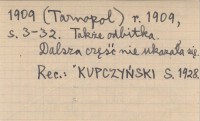 1909 (Tarnopol) r. 1909,
s. 3-32. Także odbitka.
Dalsza część nie ukazała się.
Rec.: KUPCZYŃSKI S. 1928.